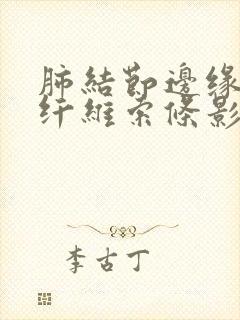 肺結節邊缘
纤維索條影
李古丁